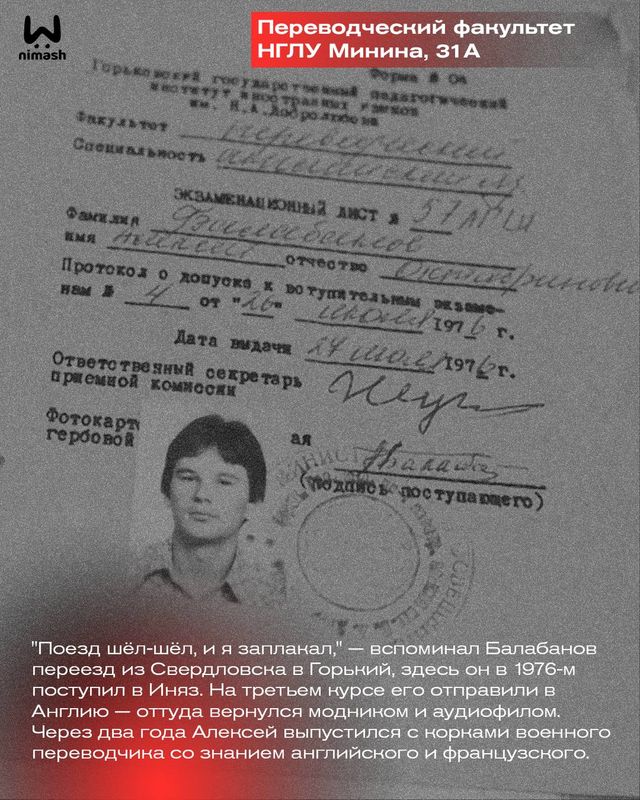 nimash
Переводческий факультет
НГЛУ Минина, 31А
Форма № 0а
Горьковский государственный педагогический
институт иностранных языков
им. Н.А.Добролюбова
Факультет переводческий
Специальность английский яз
ЭКЗАМЕНАЦИОННЫЙ ЛИСТ № 57
Фамилия Балабанов
имя Алексей отчество Октябринович
Протокол о допуске к вступительным экзаме-
нам № 4 от "26" июля 1976 г.
Дата выдачи 27 июля 1976 г.
Ответственный секретарь
приемной комиссии
Фотокарт
гербовой ая
(подпись поступающего)
"Поезд шёл-шёл, и я заплакал," — вспоминал Балабанов
переезд из Свердловска в Горький, здесь он в 1976-м
поступил в Иняз. На третьем курсе его отправили в
Англию — оттуда вернулся модником и аудиофилом.
Через два года Алексей выпустился с корками военного
переводчика со знанием английского и французского.